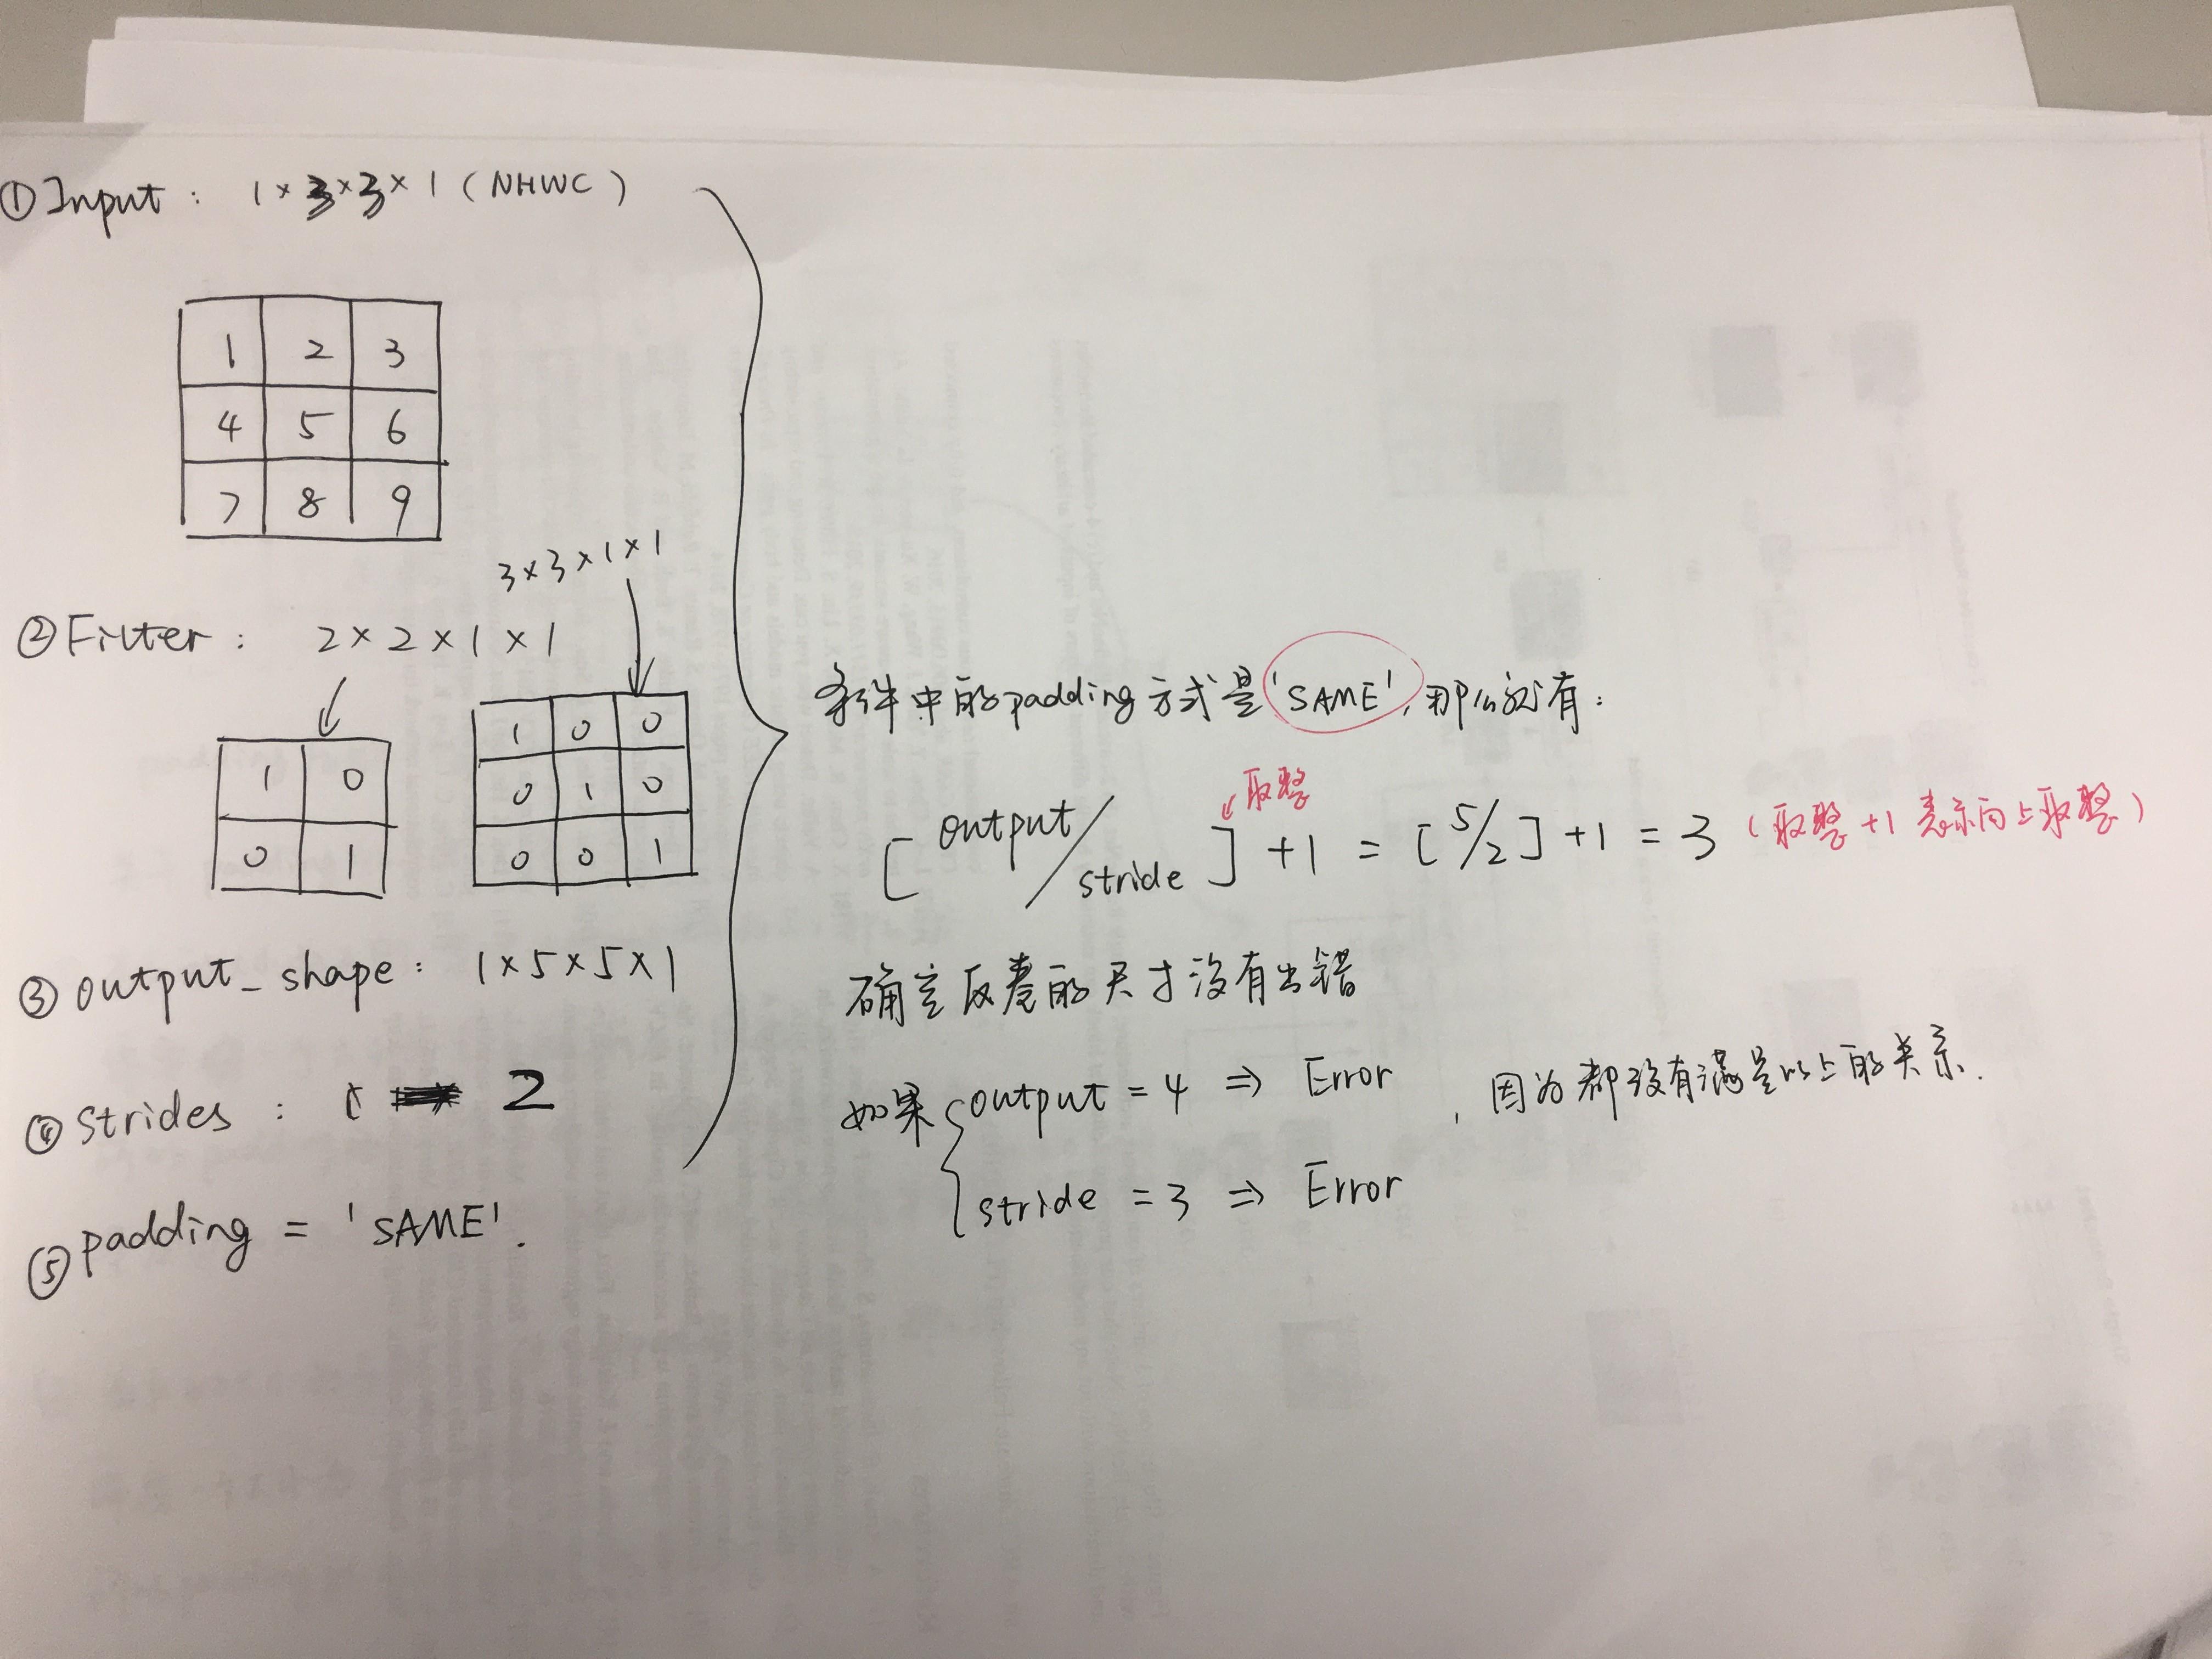 ①Input : 1×3×3×1 (NHWC)
1 2 3
4 5 6
7 8 9
3×3×1×1
②Filter : 2×2×1×1
1 0
0 1
1 0 0
0 1 0
0 0 1
③output_shape : 1×5×5×1
④strides : 2
⑤padding = 'SAME'.
条件中的padding方式是'SAME',那么就有:
取整
[output/stride]+1 = [5/2]+1 = 3 (取整+1表示向上取整)
确定反卷的尺寸没有出错
如果{output = 4 ⇒ Error
stride = 3 ⇒ Error
,因为都没有满足以上的关系.